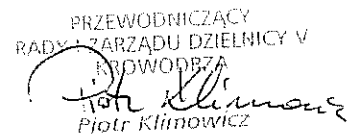 PRZEWODNICZĄCY
RADY I ZARZĄDU DZIELNICY V
KROWODRZA
Piotr Klimowicz
Piotr Klimowicz